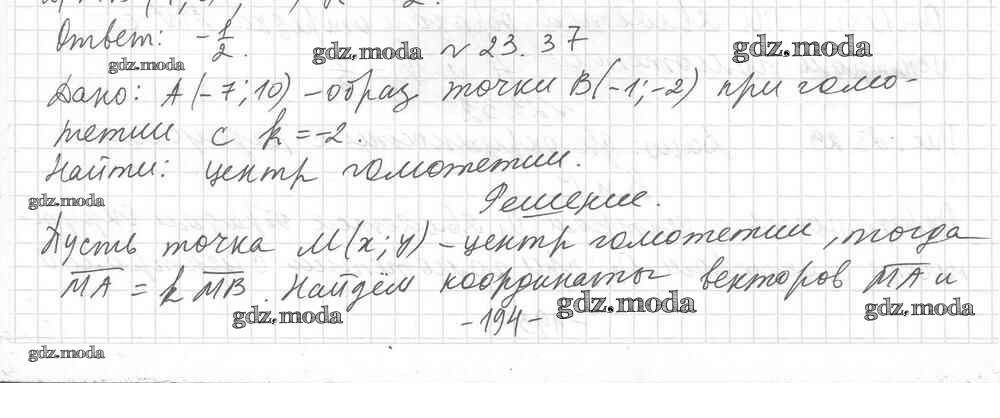 Ответ: -1/2.
gdz.moda
gdz.moda
№ 23.37
gdz.moda
Дано: A(-7;10) - образ точки B(-1;-2) при гомо-
тетии с k = -2.
Найти: центр гомотетии.
gdz.moda
Решение.
Пусть точка M(x;y) - центр гомотетии, тогда
MA = k MB. Найдём координаты векторов MA и
gdz.moda
-194-
gdz.moda
gdz.moda
gdz.moda